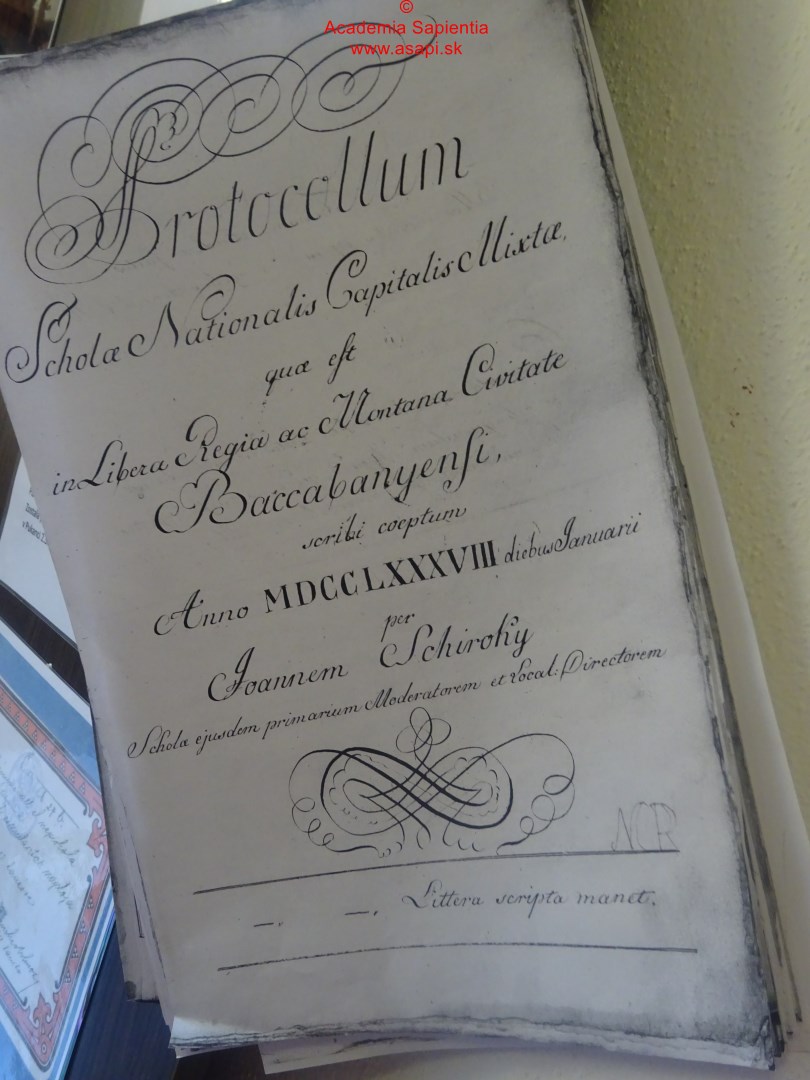 ©
Academia Sapientia
www.asapi.sk
Protocollum
Scholæ Nationalis Capitalis Mixtæ,
quæ eſt
in Libera Regia ac Montana Civitate
Baccabanyenſi,
scribi coeptum
Anno MDCCLXXXVIII diebus Januarii
per
Joannem Schiroky
Scholæ ejusdem primarium Moderatorem et Local: Directorem
NCR
—. —. Littera scripta manet.